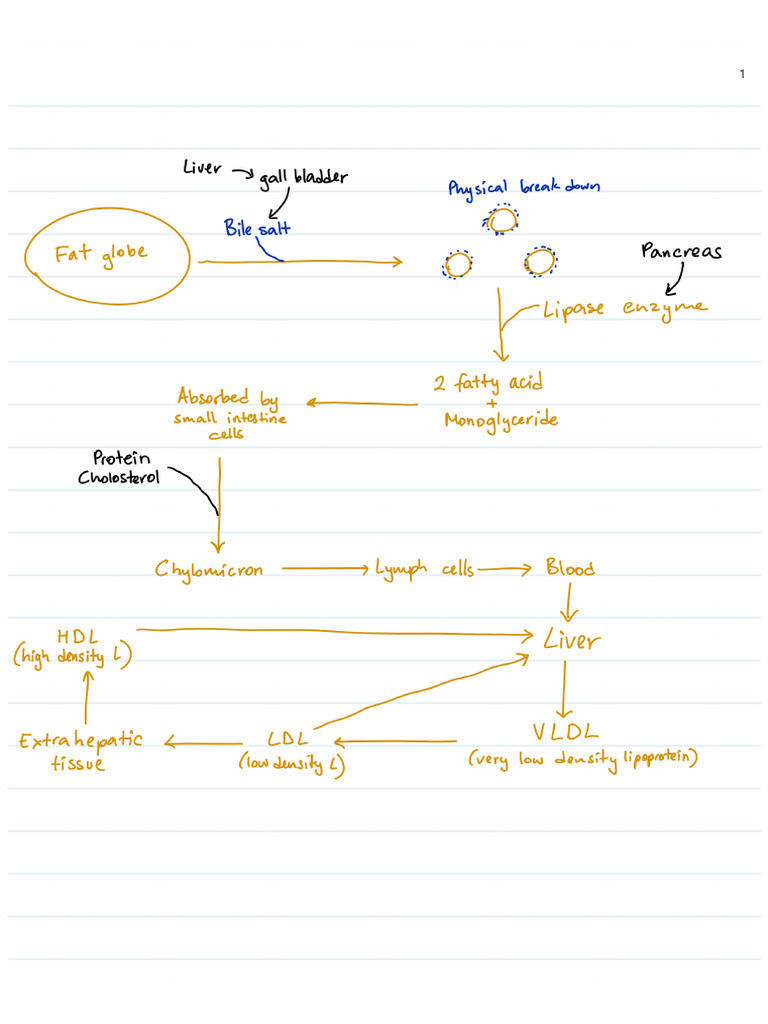 1
Liver
gall bladder
Bile salt
Physical break down
Fat globe
Pancreas
Lipase enzyme
2 fatty acid
+
Monoglyceride
Absorbed by
small intestine
cells
Protein
Cholosterol
Chylomicron
Lymph cells
Blood
HDL
(high density L)
Liver
Extrahepatic
tissue
LDL
(low density L)
VLDL
(very low density lipoprotein)